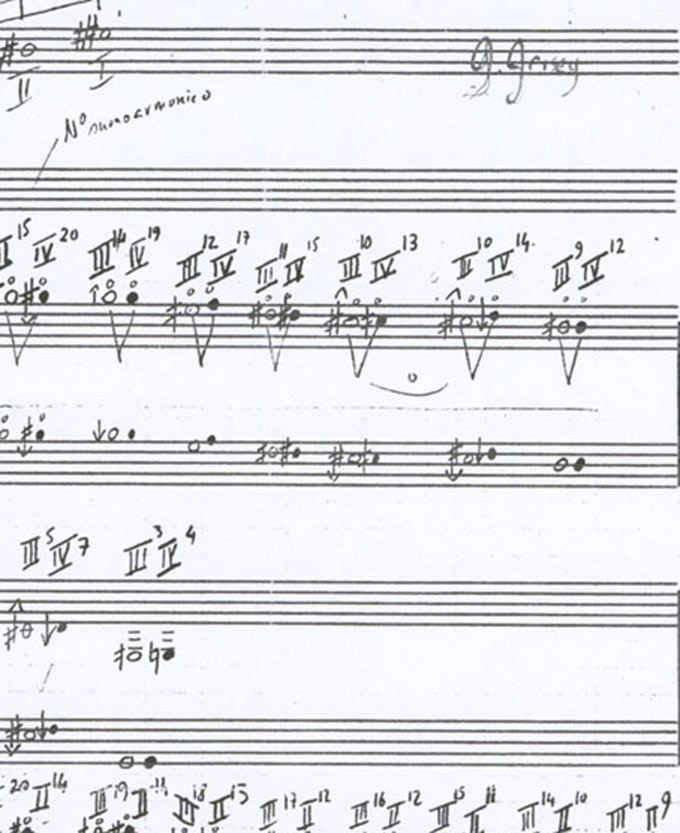 II I
G. Grisey
III 15 IV 20 III 14 IV 19 III 12 IV 17 III 11 IV 15 III 10 IV 13 III 10 IV 14 III 9 IV 12
III 5 IV 7 III 3 IV 4
20 II 14 III 19 II III 18 II 13 III 17 II 12 III 16 II 12 III 15 II 11 III 14 II 10 III 12 II 9